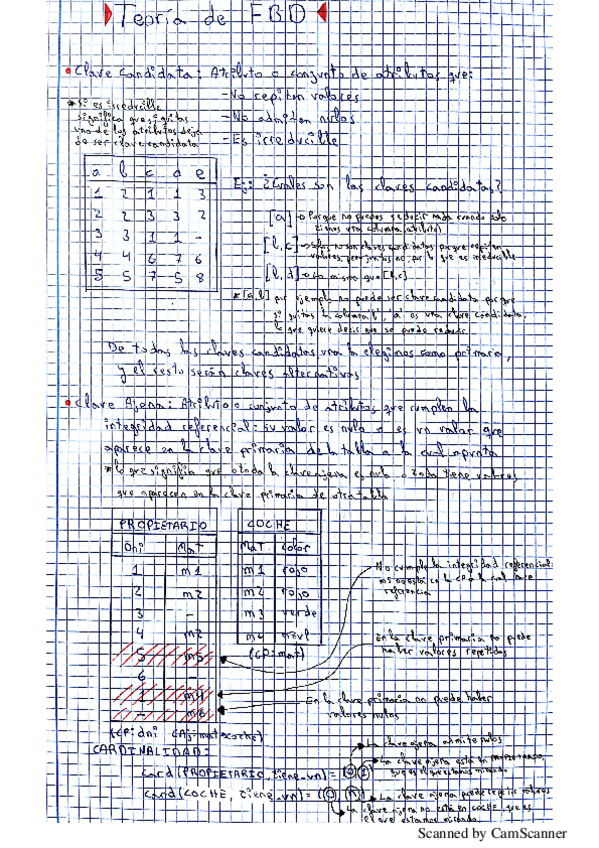 Teoría de FBD
• Clave Candidata: Atributo o conjunto de atributos que:
- No repiten valores
- No admiten nulos
- Es irreducible
* Si es irreducible
significa que si quitas
uno de los atributos deja
de ser clave candidata
a b c d e
1 2 1 1 3
2 2 3 3 2
3 3 1 1 -
4 4 6 7 6
5 5 7 5 8
Ej: ¿Cuáles son las claves candidatas?
[a] → Porque no puedes reducir nada cuando solo
una columna (atributo)
[b,c] → solas no son claves candidatas porque repiten
valores, pero juntas no, por lo que es irreducible
[b,d] → Lo mismo que [b,c]
* [a,b] por ejemplo no puede ser clave candidata porque
si quitas la columna 'b', 'a' es una clave candidata,
lo que quiere decir que se puede reducir
De todas las claves candidatas una la elegimos como primaria,
y el resto serán claves alternativas
• Clave Ajena: Atributo o conjunto de atributos que cumplen la
integridad referencial: su valor es nulo o es un valor que
aparece en la clave primaria de la tabla a la cual apunta
* lo que significa que o toda la clave ajena es nula o toda tiene valores
que aparecen en la clave primaria de otra tabla
PROPIETARIO
Dni Mat
1 m1
2 m2
3 -
4 m2
5 m5
6 -
1 m4
- m6
(CP: dni CAj: mat → coche)
COCHE
Mat color
m1 rojo
m2 rojo
m3 verde
m4 azul
(CP: mat)
No cumple la integridad referencial:
m5 no está en la CP a la cual hace
referencia
En la clave primaria no puede
haber valores repetidos
En la clave primaria no puede haber
valores nulos
CARDINALIDAD:
La clave ajena admite nulos
La clave ajena está en PROPIETARIO,
que es el que estamos mirando
Card(PROPIETARIO, tiene_un) = (0, 1)
Card(COCHE, tiene_un) = (0, n)
La clave ajena puede repetir valores
La clave ajena no está en coche, que es
el que estamos mirando
Scanned by CamScanner